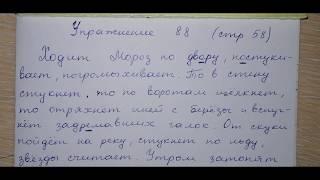 Упражнение 88 (стр 58)
Ходит Мороз по двору, постуки-
вает, погромыхивает. То в стену
стукнет, то по воротам щелкнет,
то отряхнет иней с берёзы и вспуг-
нёт задремавших галок. От скуки
пойдёт на реку, стукнет по льду,
звезды считает. Утром затопят